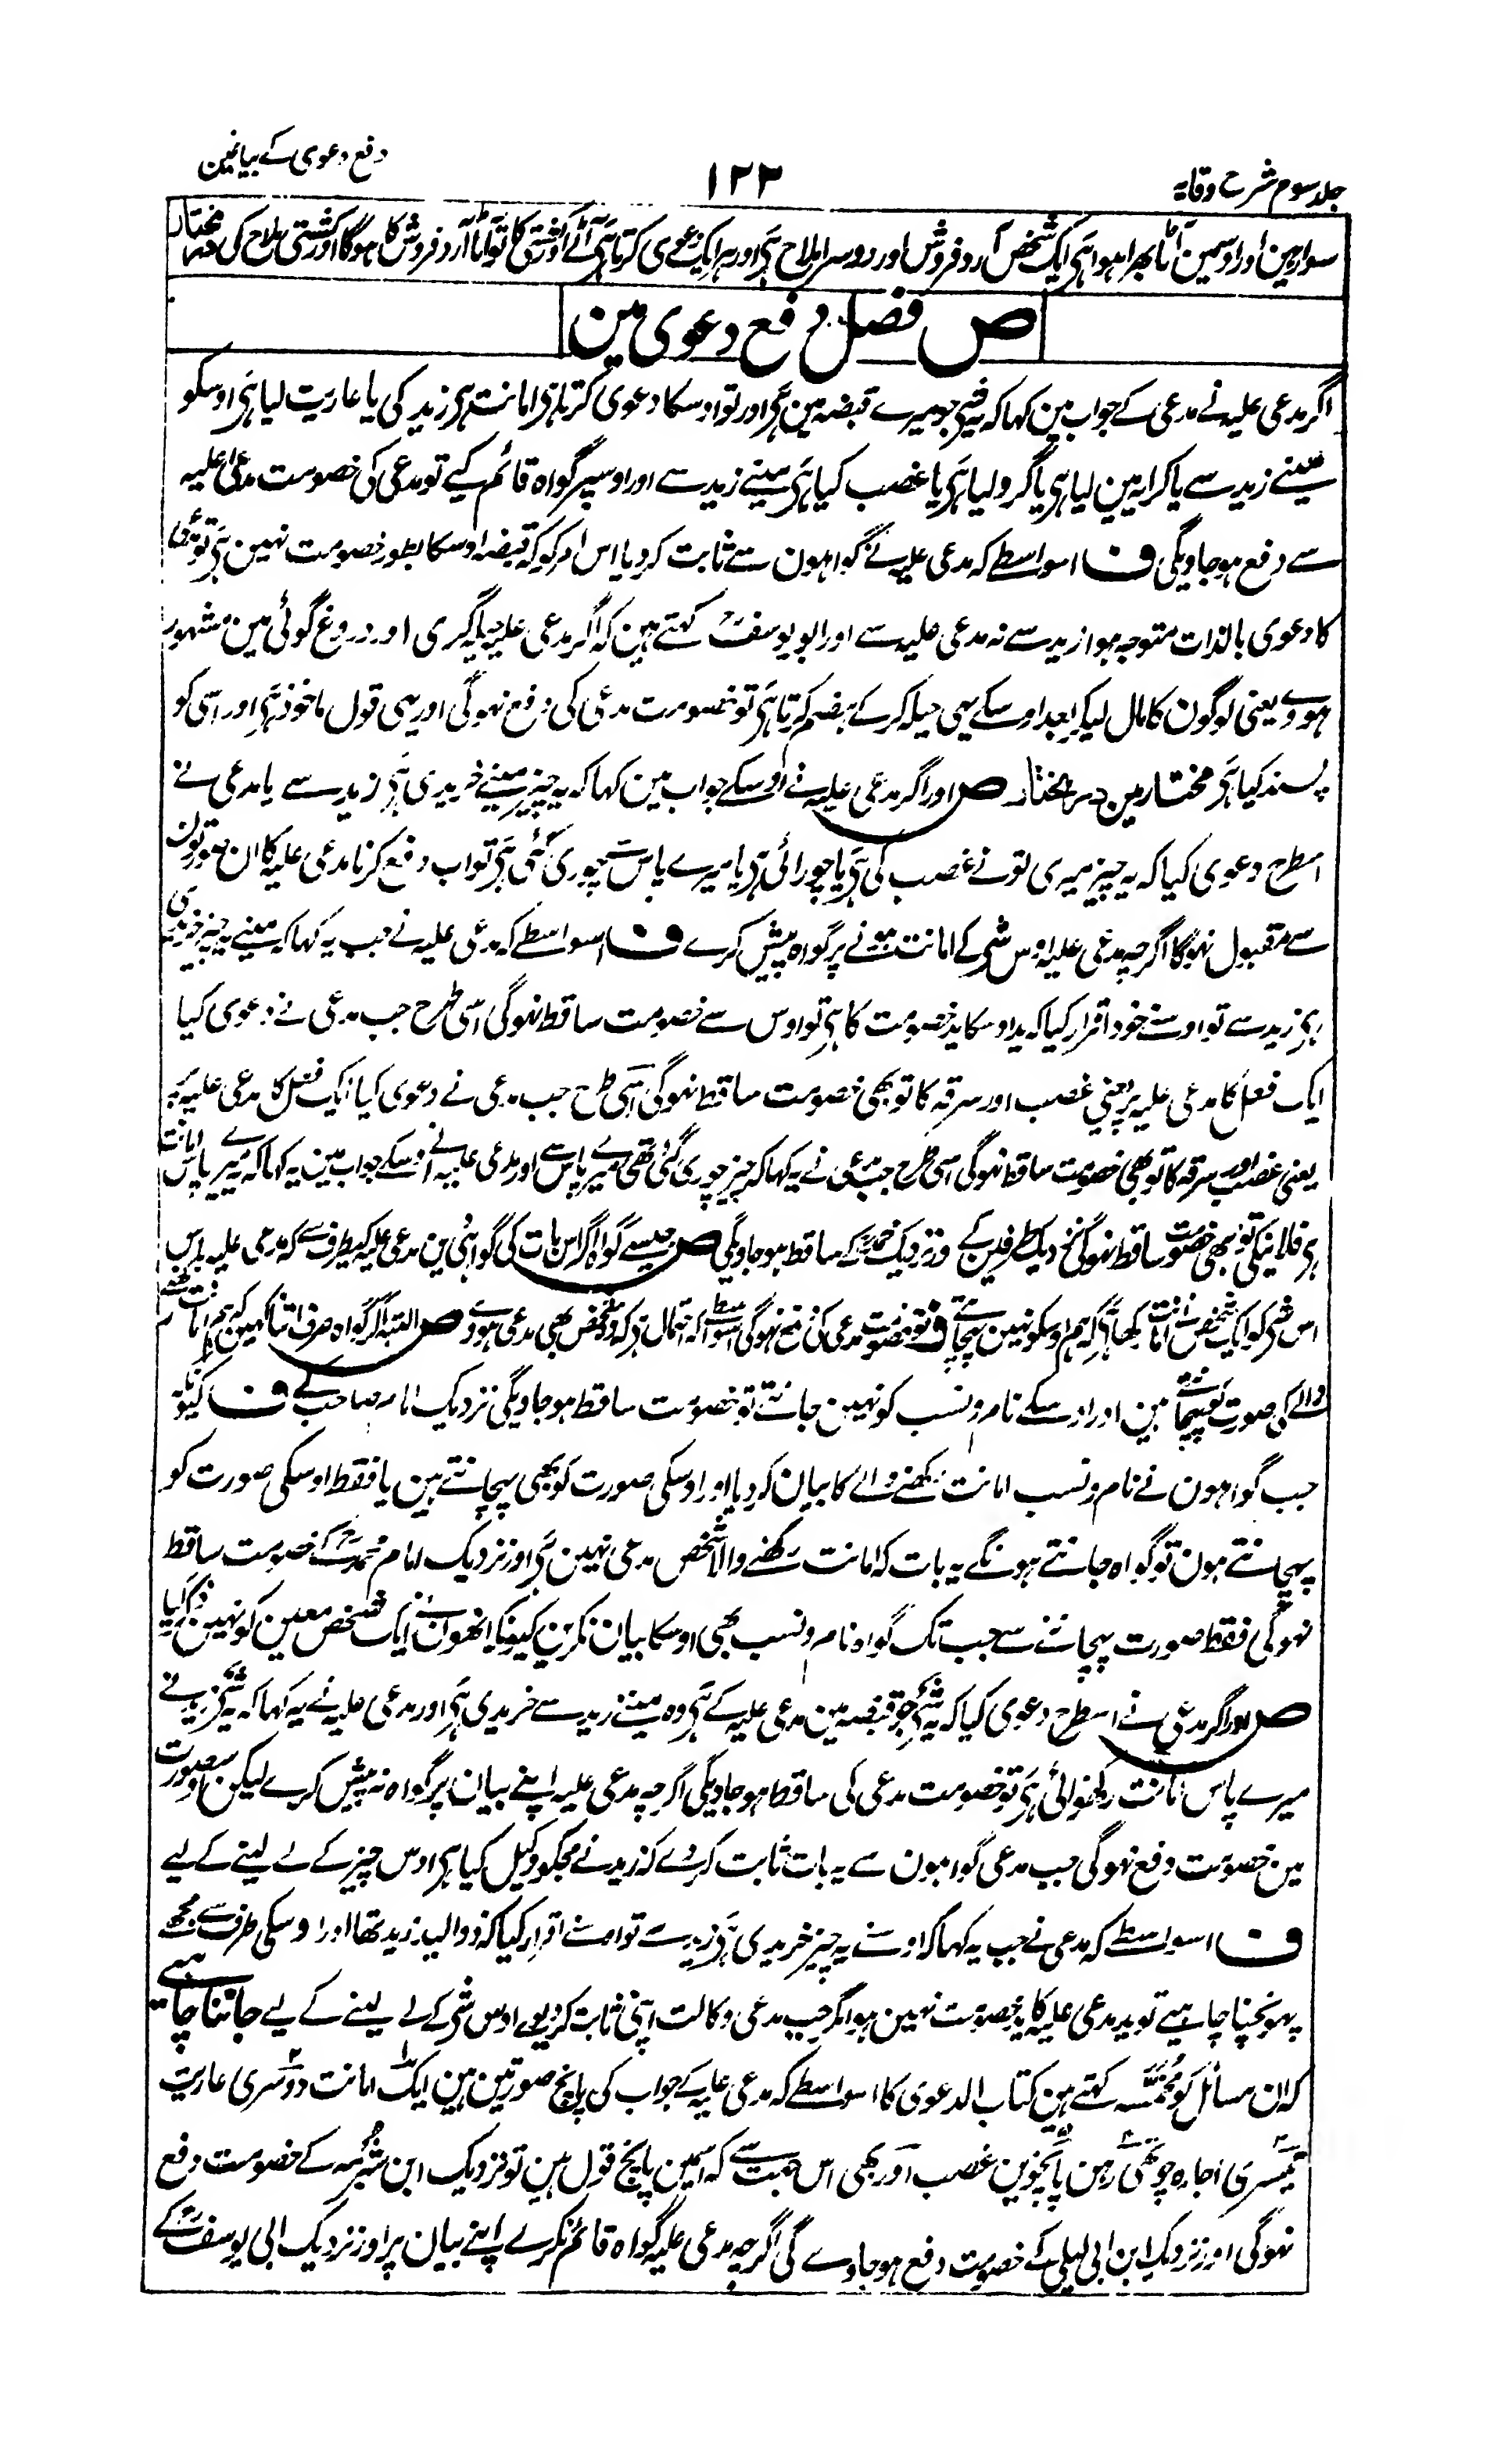 جلد سوم شرح وقایہ
۱۲۳
دفع دعوی کے بیانمین
سوار ہین اور اوسمین آٹا بھرا ہوا ہی ایک شخص آرد فروش اور دوسرا ملاح ہی اور ہر ایک دعوی کرتا ہی آٹے اور کشتی کا تو آٹا آرد فروش کا ہوگا اور کشتی ملاح کی در مختار
ص فصل دفع دعوی مین
اگر مدعی علیہ نے مدعی کے جواب مین کہا کہ یہ شی جو میرے قبضہ مین ہی اور تو اوسکا دعوی کرتا ہی امانت ہی زید کی یا عاریت لیا ہی اوسکو
مینے زید سے یا کرایہ مین لیا ہی یا گرو لیا ہی یا غصب کیا ہی مینے زید سے اور اوسپر گواہ قائم کیے تو مدعی کی خصومت مدعی علیہ
سے دفع ہو جاویگی ف اسواسطے کہ مدعی علیہ نے گواہون سے ثابت کر دیا اس امر کو کہ قبضہ اوسکا بطور خصومت نہین ہی تو مدعی
کا دعوی بالذات متوجہ ہوا زید سے نہ مدعی علیہ سے اور ابو یوسفؒ کہتے ہین کہ اگر مدعی علیہ حیلہ گری اور دروغ گوئی مین مشہور
ہووے یعنی لوگون کا مال لیکر بعد اوسکے یہی حیلہ کرکے ہضم کرتا ہی تو خصومت مدعی کی دفع نہوگی اور یہی قول ماخوذ ہی اور اسی کو
پسند کیا ہی مختار مین در مختار ص اور اگر مدعی علیہ نے اوسکے جواب مین کہا کہ یہ چیز مینے خریدی ہی زید سے یا مدعی نے
اسطرح دعوی کیا کہ یہ چیز میری تونے غصب کی ہی یا چورائی ہی یا میرے پاس سے چوری گئی ہی تو اب دفع کرنا مدعی علیہ کا ان صورتون
سے مقبول نہوگا اگرچہ مدعی علیہ اوس شی کے امانت ہونے پر گواہ پیش کرے ف اسواسطے کہ مدعی علیہ نے جب یہ کہا کہ مینے یہ چیز خریدی
ہی زید سے تو اوسنے خود اقرار کیا کہ ید اوسکا ید خصومت کا ہی تو اوس سے خصومت ساقط نہوگی اسی طرح جب مدعی نے دعوی کیا
ایک فعل کا مدعی علیہ پر یعنی غصب اور سرقہ کا تو بھی خصومت ساقط نہوگی اسی طرح جب مدعی نے دعوی کیا ایک فعل کا مدعی علیہ پر
یعنی غصب اور سرقہ کا تو بھی خصومت ساقط نہوگی اسی طرح جب مدعی نے یہ کہا کہ چیز چوری گئی تھی میرے پاس سے اور مدعی علیہ نے اوسکے جواب مین یہ کہا کہ میرے پاس امانت
ہی فلانیکی تو بھی خصومت ساقط نہوگی نزدیک طرفین کے و نزدیک محمدؒ کے ساقط ہو جاویگی ص جیسے گواہ اگر اس بات کی گواہی دین مدعی علیہ کیطرف سے کہ مدعی علیہ پاس
اس شی کو ایک شخص نے امانت رکھا ہی کہ ہم اوسکو نہین پہچانتے تو خصومت مدعی کی دفع نہوگی ف اسواسطے کہ احتمال ہی کہ وہ شخص بھی مدعی ہووے ص البتہ اگر گواہ صرف اتنا کہین کہ ہم امانت رکھنے
والے کی صورت کو پہچانتے ہین اور اوسکے نام و نسب کو نہین جانتے تو خصومت ساقط ہو جاویگی نزدیک امام صاحب کے ف کیونکہ
جب گواہون نے نام و نسب امانت رکھنے والے کا بیان کر دیا اور اوسکی صورت کو بھی پہچانتے ہین یا فقط اوسکی صورت کو
پہچانتے ہون تو گواہ جانتے ہونگے یہ بات کہ امانت رکھنے والا شخص مدعی نہین ہی اور نزدیک امام محمدؒ کے خصومت ساقط
نہوگی فقط صورت پہچاننے سے جب تک گواہ نام و نسب بھی اوسکا بیان نکرین کیونکہ انھون نے ایک شخص معین کو نہین ذکر کیا
ص اور اگر مدعی نے اسطرح دعوی کیا کہ یہ شی جو قبضہ مین مدعی علیہ کے ہی وہ مینے زید سے خریدی ہی اور مدعی علیہ نے یہ کہا کہ یہ شی زید نے
میرے پاس امانت رکھوائی ہی تو خصومت مدعی کی ساقط ہو جاویگی اگرچہ مدعی علیہ اپنے بیان پر گواہ نہ پیش کرے لیکن اوسصورت
مین خصومت دفع نہوگی جب مدعی گواہون سے یہ بات ثابت کردے کہ زید نے مجکو وکیل کیا ہی اوس چیز کے لے لینے کے لیے
ف اسواسطے کہ مدعی نے جب یہ کہا کہ اوسنے یہ چیز خریدی ہی زید سے تو اوسنے اقرار کیا کہ ذوالید زید تھا اور اوسکی طرف سے مجھے
پہونچنا چاہیے تو ید مدعی علیہ کا ید خصومت نہین ہوا مگر جب مدعی وکالت اپنی ثابت کردیوے اوس شی کے لے لینے کے لیے جاننا چاہیے
کہ ان مسائل کو مخمسہ کہتے ہین کتاب الدعوی کا اسواسطے کہ مدعی علیہ کے جواب کی پانچ صورتین ہین ایک امانت دوسری عاریت
تیسری اجارہ چوتھی رہن پانچوین غصب اور بھی اس جہت سے کہ اسمین پانچ قول ہین تو نزدیک ابن شبرمہ کے خصومت دفع
نہوگی اور نزدیک ابن ابی لیلی کے خصومت دفع ہو جاوے گی اگرچہ مدعی علیہ گواہ قائم نکرے اپنے بیان پر اور نزدیک ابی یوسفؒ کے